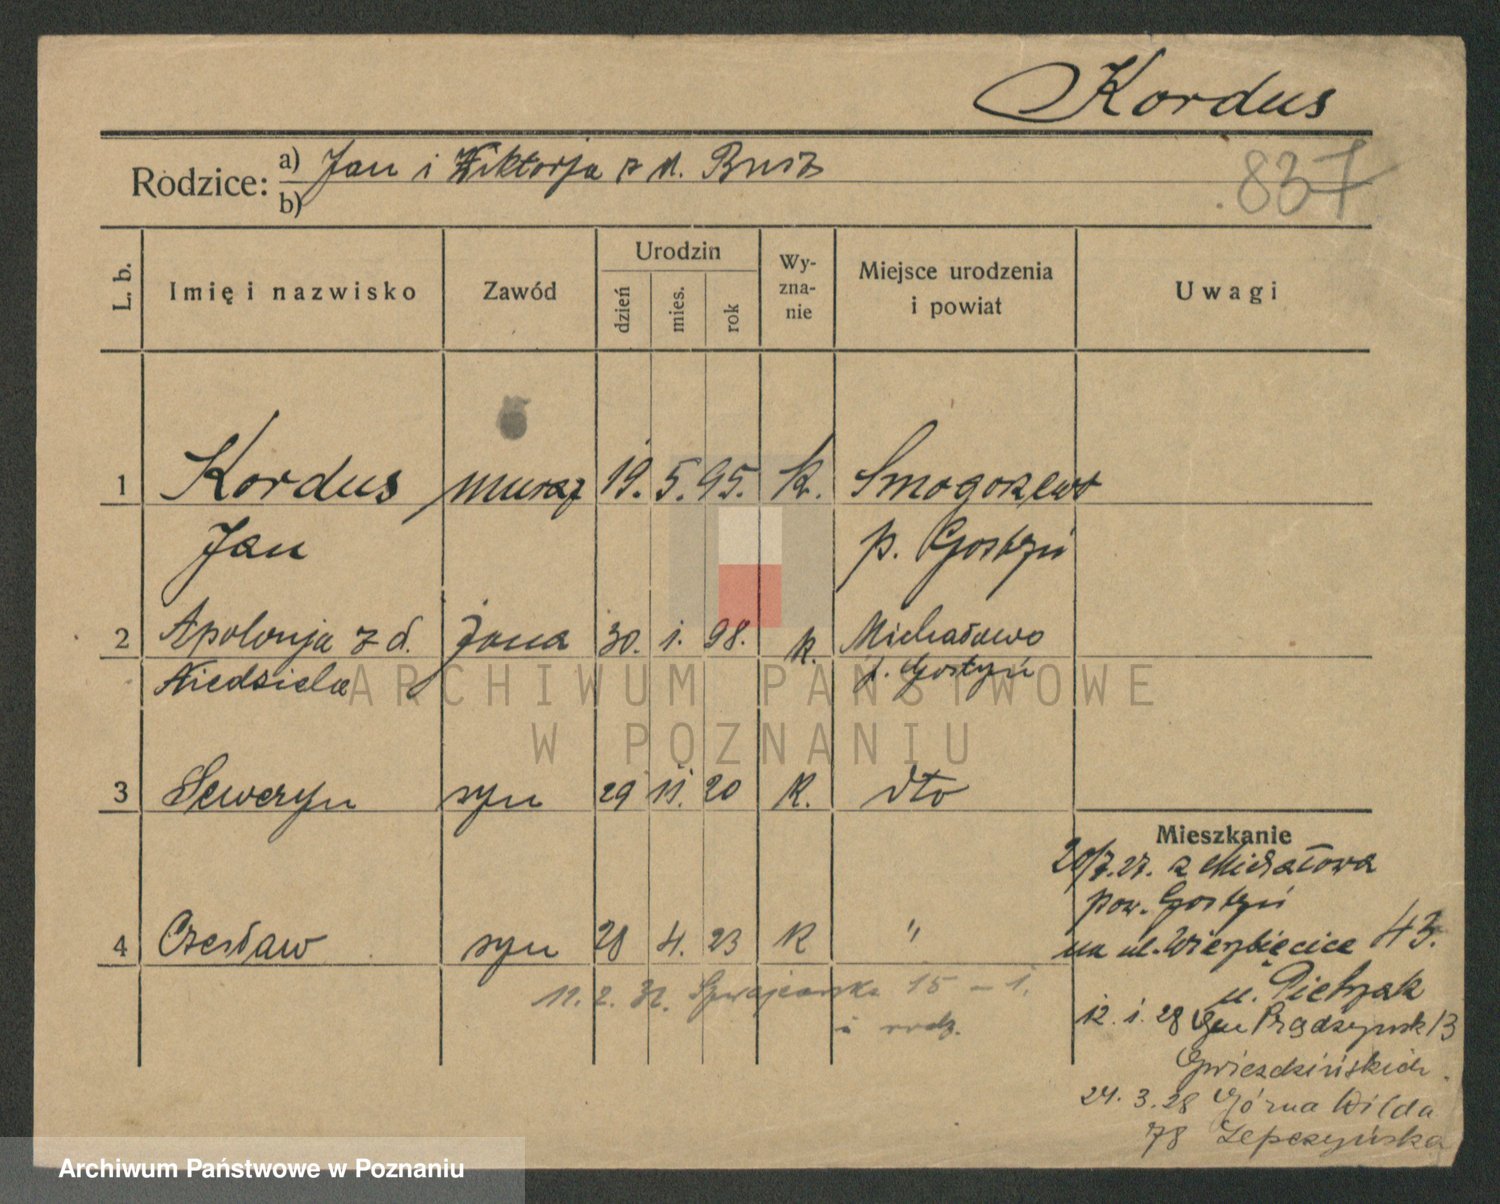 Kordus
Rodzice: a) Jan i Wiktorja z d. Busz
b)
837
L. b.
Imię i nazwisko
Zawód
Urodzin
dzień
mies.
rok
Wy-
zna-
nie
Miejsce urodzenia
i powiat
Uwagi
1 Kordus murarz 19. 5. 95. k. Smogorzewo
Jan p. Gostyń
2 Apolonja z d. żona 30. 1. 98. k. Michałowo
Niedziela p. Gostyń
ARCHIWUM PAŃSTWOWE
W POZNANIU
3 Seweryn syn 29 11. 20 k. dto
Mieszkanie
20/7.27. z Michałowa
pow. Gostyń
4 Czesław syn 28 4. 23 k "
na ul. Wierzbięcice 43.
u. Pietrzak
11. 2. 32. 15 - 1.
12. 1. 28 Gen Prądzyńsk 13
Gwiezdzińskich
24. 3. 28 Górna Wilda
78 Lepczyńska
Archiwum Państwowe w Poznaniu